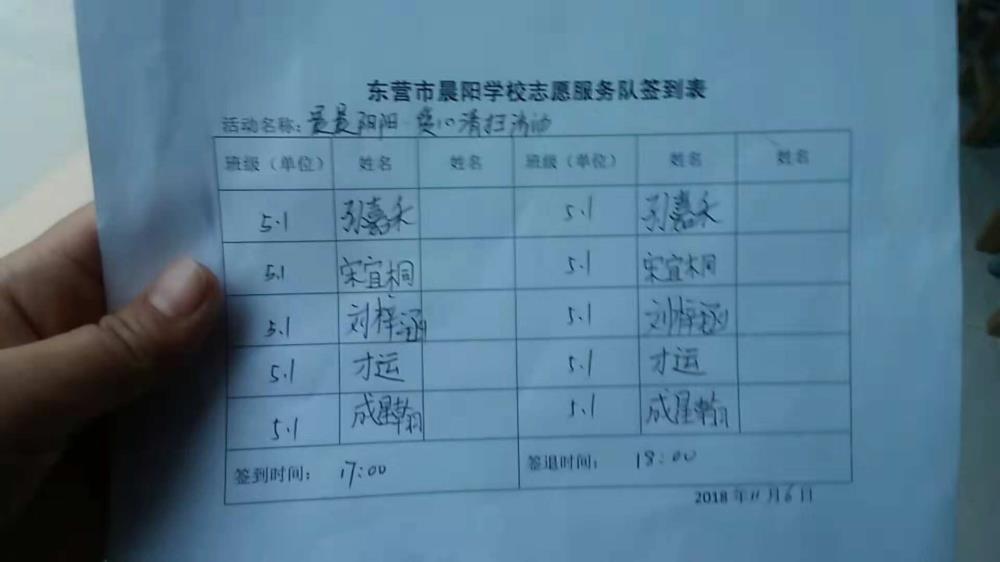 东营市晨阳学校志愿服务队签到表
活动名称：晨晨阳阳 爱心清扫污油
班级（单位） 姓名 姓名 班级（单位） 姓名 姓名
5.1 孙嘉禾 5.1 孙嘉禾
5.1 宋宜桐 5.1 宋宜桐
5.1 刘梓涵 5.1 刘梓涵
5.1 才运 5.1 才运
5.1 成星翰 5.1 成星翰
签到时间： 17:00 签退时间： 18:00
2018 年 11 月 6 日